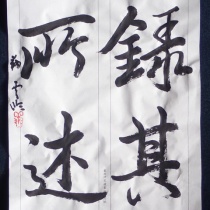 録其
所述